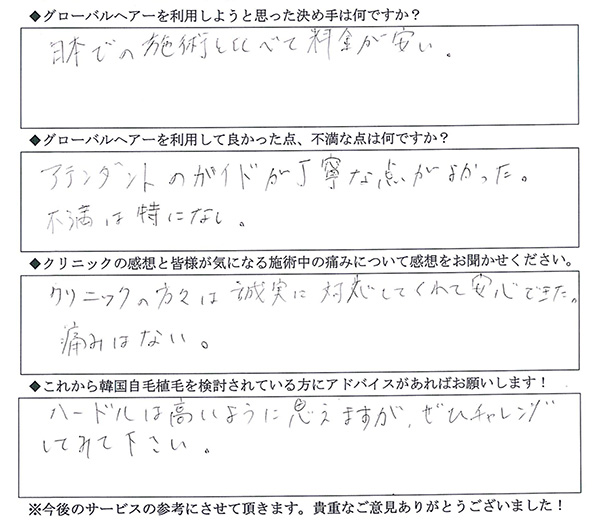 ◆グローバルヘアーを利用しようと思った決め手は何ですか?
日本での施術と比べて料金が安い。
◆グローバルヘアーを利用して良かった点、不満な点は何ですか?
アテンダントのガイドが丁寧な点がよかった。
不満は特になし。
◆クリニックの感想と皆様が気になる施術中の痛みについて感想をお聞かせください。
クリニックの方々は誠実に対応してくれて安心できた。
痛みはない。
◆これから韓国自毛植毛を検討されている方にアドバイスがあればお願いします!
ハードルは高いように思えますが、ぜひチャレンジ
してみて下さい。
※今後のサービスの参考にさせて頂きます。貴重なご意見ありがとうございました!